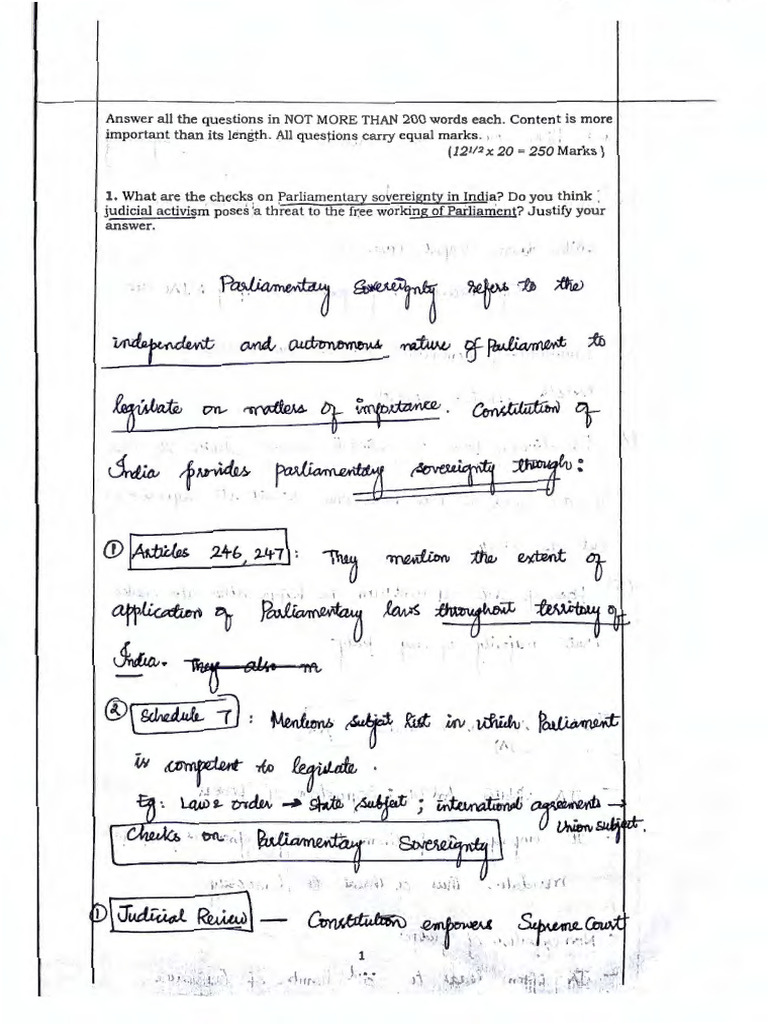 Answer all the questions in NOT MORE THAN 200 words each. Content is more
important than its length. All questions carry equal marks.
(121/2 x 20 = 250 Marks)
1. What are the checks on Parliamentary sovereignty in India? Do you think
judicial activism poses a threat to the free working of Parliament? Justify your
answer.
Parliamentary Sovereignty refers to the
independent and autonomous nature of Parliament to
legislate on matters of importance. Constitution of
India provides parliamentary sovereignty through:
① Articles 246, 247: They mention the extent of
application of Parliamentary laws throughout territory of
India. They also m
② Schedule 7: Mentions subject list in which Parliament
is competent to legislate.
Eg: Law & order → State subject; international agreements →
Union subject.
Checks on Parliamentary Sovereignty
① Judicial Review — Constitution empowers Supreme Court
1